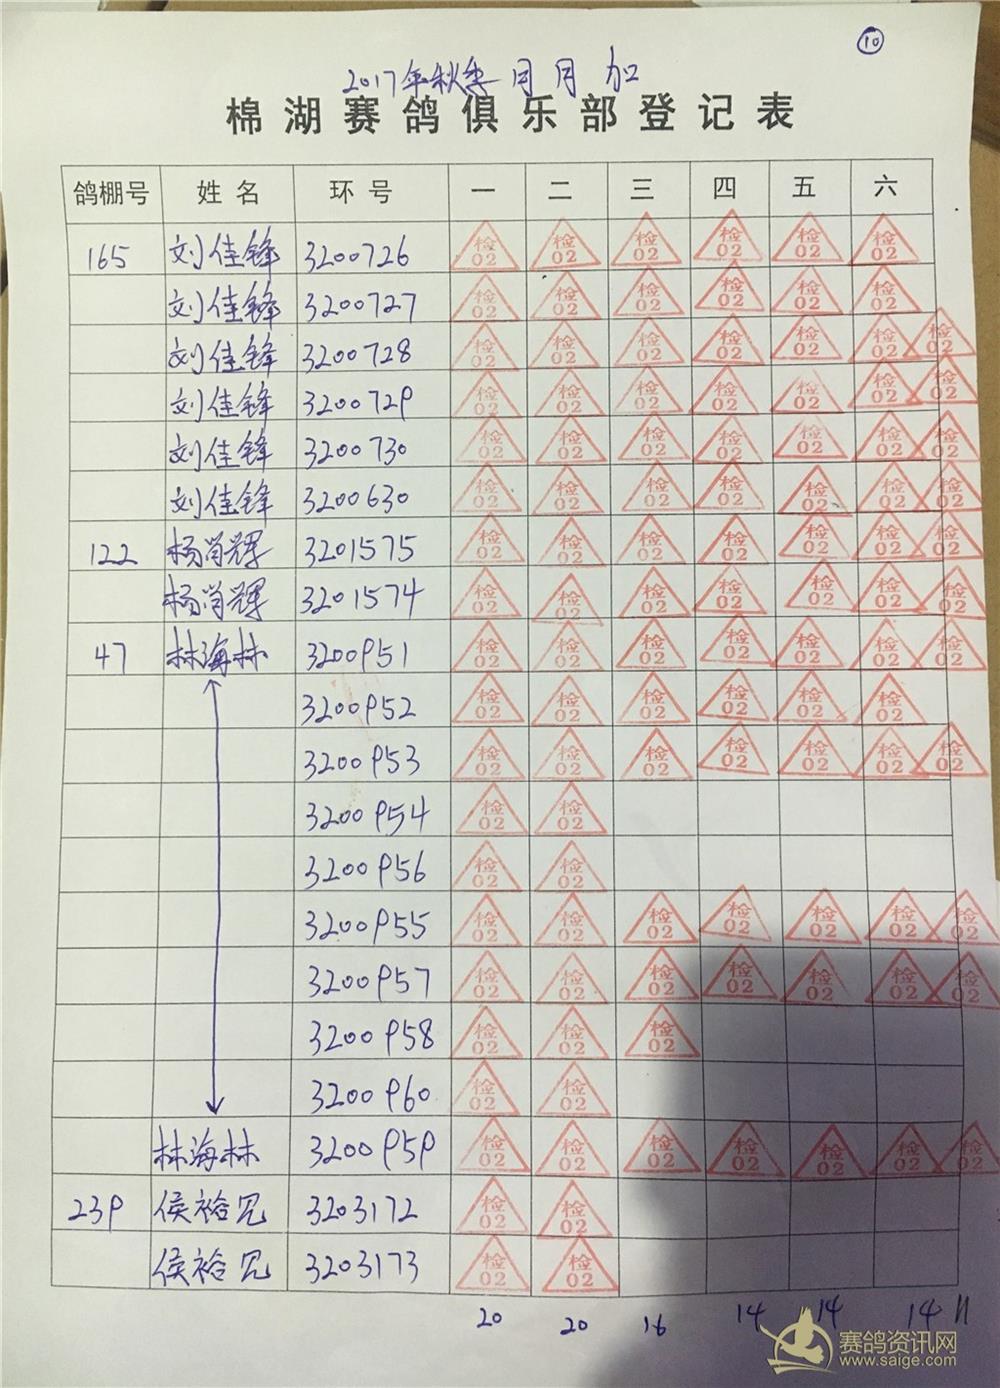 10
2017年秋季 月月加
棉湖赛鸽俱乐部登记表
鸽棚号 姓名 环号 一 二 三 四 五 六
165 刘佳锋 3200726 检02 检02 检02 检02 检02 检02
刘佳锋 3200727 检02 检02 检02 检02 检02 检02
刘佳锋 3200728 检02 检02 检02 检02 检02 检02 检02
刘佳锋 3200729 检02 检02 检02 检02 检02 检02 检02
刘佳锋 3200730 检02 检02 检02 检02 检02 检02 检02
刘佳锋 3200630 检02 检02 检02 检02 检02 检02 检02
122 杨肖辉 3201575 检02 检02 检02 检02 检02 检02 检02
杨肖辉 3201574 检02 检02 检02 检02 检02 检02 检02
47 林海林 3200951 检02 检02 检02 检02 检02 检02 检02
3200952 检02 检02 检02 检02 检02 检02
3200953 检02 检02 检02 检02 检02 检02 检02
3200954 检02 检02
3200956 检02 检02
3200955 检02 检02 检02 检02 检02 检02 检02
3200957 检02 检02 检02 检02 检02 检02 检02
3200958 检02 检02 检02
3200960 检02 检02
林海林 3200959 检02 检02 检02 检02 检02 检02 检02
239 侯裕 3203172 检02 检02
侯裕 3203173 检02 检02
20 20 16 14 14 14 11
赛鸽资讯网
www.saige.com